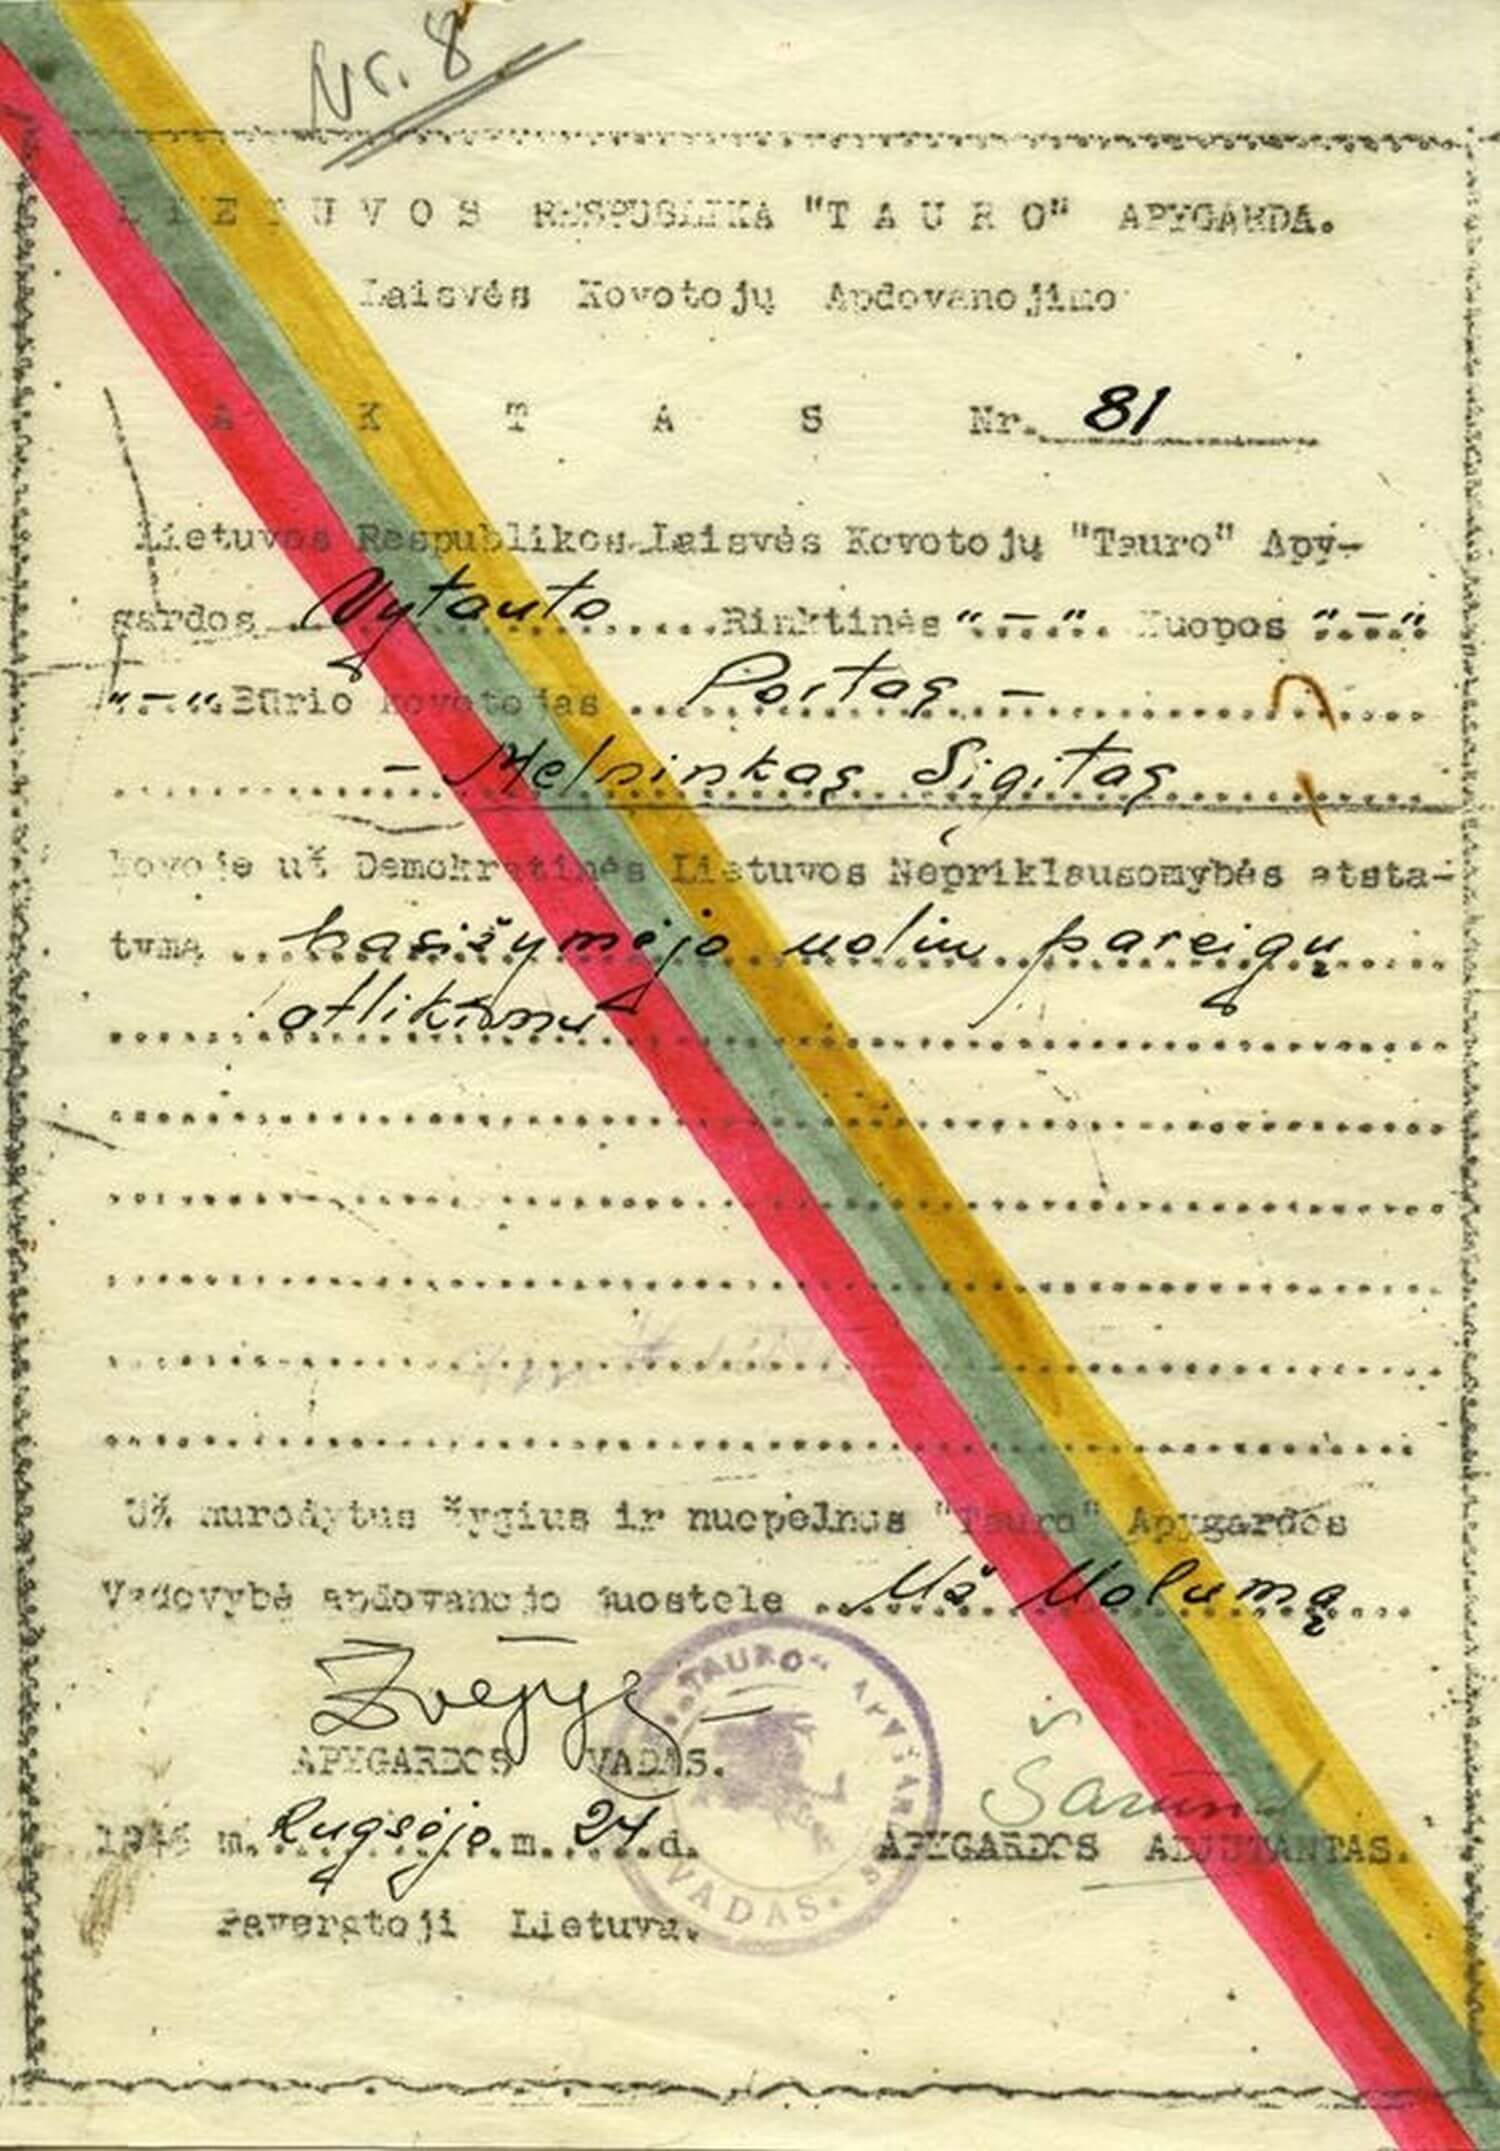 Nr. 8
LIETUVOS RESPUBLIKA "TAURO" APYGARDA.
Laisvės Kovotojų Apdovanojimo
AKTAS Nr. 81
Lietuvos Respublikos Laisvės Kovotojų "Tauro" Apy-
gardos Vytauto Rinktinės "-" Kuopos "-"
"-" Būrio kovotojas Portas -
- Melninkas Sigitas
kovoje už Demokratinės Lietuvos Nepriklausomybės atsta-
tymą pasižymėjo uoliu pareigų
atlikimu
Už nurodytus žygius ir nuopelnus "Tauro" Apygardos
Vadovybė apdovanojo juostele Už Uolumą
Žvejys
"TAURO" APYGARDOS VADAS.
Šarūnas
APYGARDOS VADAS.
194 m. Rugsėjo m. 24 d.
APYGARDOS ADJUTANTAS.
Pavergtoji Lietuva.